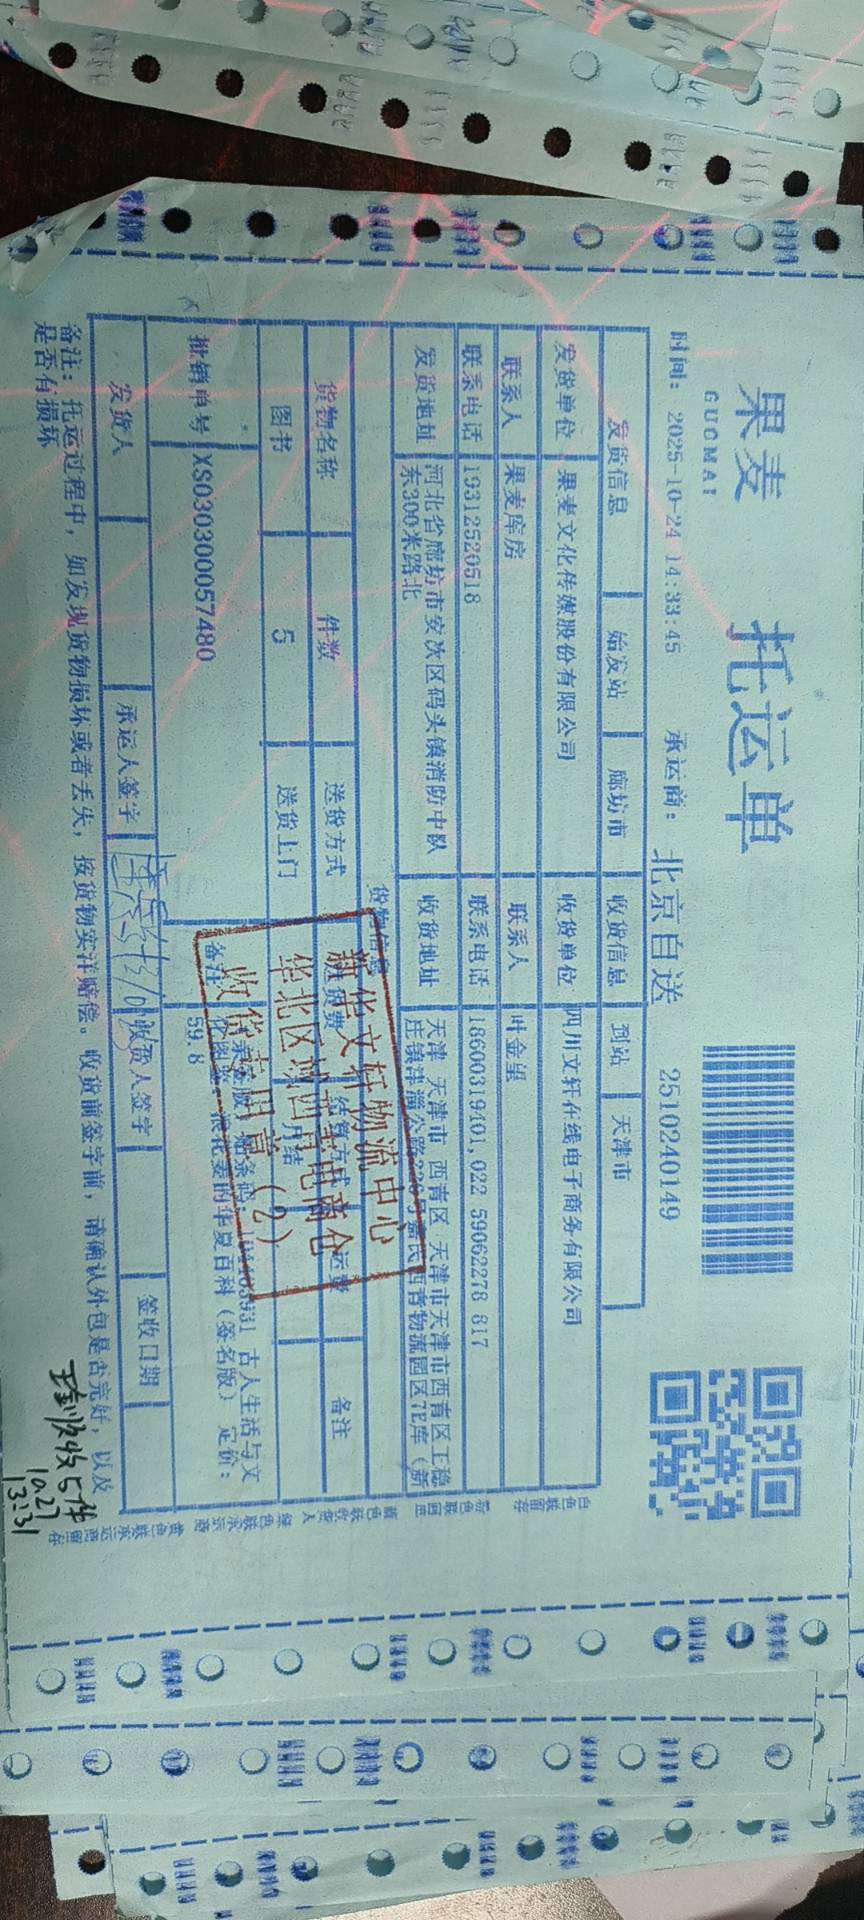 果麦 托运单
GUOMAI
时间: 2025-10-24 14:33:45 承运商: 北京自送 2510240149
发货信息 始发站 廊坊市 收货信息 到站 天津市
发货单位 果麦文化传媒股份有限公司 收货单位 四川文轩在线电子商务有限公司
联系人 果麦库房 联系人 叶金星
联系电话 19312520518 联系电话 18600319401,022 59062278 817
发货地址 河北省廊坊市安次区码头镇消防中队 收货地址 天津 天津市 西青区 天津市天津市西青区王稳
东300米路北 庄镇津淄公路 西青物流园区7E库（新
货物信息
货物名称 件数 送货方式 结算方式 运费 备注
图书 5 送货上门 月结
批销单号 XS030300057480 备注 古人生活与文
华夏百科（签名版） 定价:
59.8
发货人 承运人签字 收货人签字 签收日期
备注: 托运过程中, 如发现货物损坏或者丢失, 按货物实洋赔偿。收货前签字前, 请确认外包是否完好, 以及
是否有损坏
新华文轩物流中心
华北区域西青电商仓
收货专用章（2）
收5件
10.27
13:31
白色联留存
蓝色联收货人
绿色联承运商
黄色联承运商留存